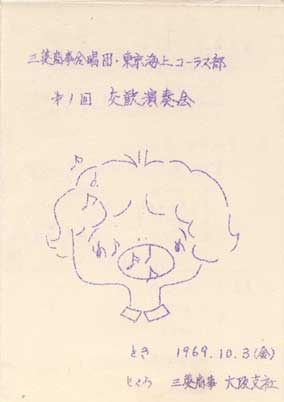 三菱商事合唱団・東京海上コーラス部
第1回 交歓演奏会
とき 1969.10.3(金)
ところ 三菱商事 大阪支社